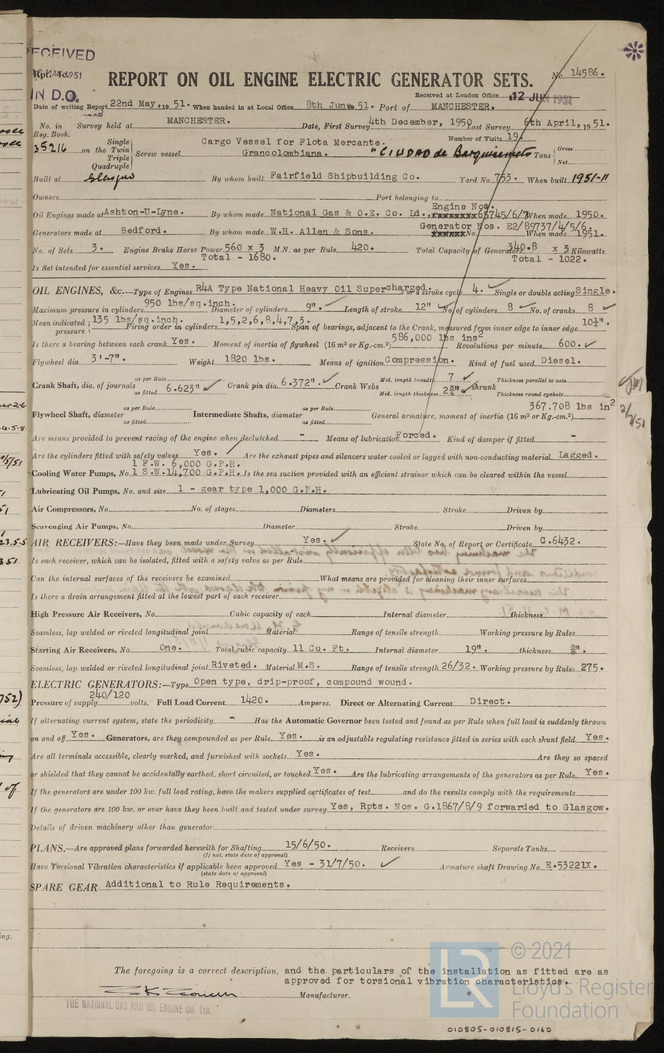 RECEIVED
MAY 1951
IN D.O.
REPORT ON OIL ENGINE ELECTRIC GENERATOR SETS.
No. 14586.
Received at London Office 12 JUN 1951
Date of writing Report 22nd May, 19 51. When handed in at Local Office 8th June 19 51. Port of MANCHESTER.
No. in Reg. Book. Survey held at MANCHESTER. Date, First Survey 4th December, 1950 Last Survey 6th April, 19 51.
Number of Visits 19
35216 on the Single Twin Triple Quadruple Screw vessel Cargo Vessel for Flota Mercante. Grancolombiana. "CIUDAD de Barquisimeto" Tons Gross Net
Built at Glasgow By whom built Fairfield Shipbuilding Co. Yard No. 753. When built 1951-11
Owners Port belonging to
Oil Engines made at Ashton-U-Lyne. By whom made National Gas & O.E. Co. Ld. Engine Nos. 65745/6/7 When made 1950.
Generators made at Bedford. By whom made W.H. Allen & Sons. Generator Nos. E2/89737/4/5/6. When made 1951.
No. of Sets 3. Engine Brake Horse Power 560 x 3 M.N. as per Rule 420. Total Capacity of Generators 340.8 x 3 Kilowatts
Total - 1680. Total - 1022.
Is Set intended for essential services Yes.
OIL ENGINES, &c.—Type of Engines R4A Type National Heavy Oil Supercharged. 2 or 4 stroke cycle 4. Single or double acting Single.
Maximum pressure in cylinders 950 lbs/sq.inch. Diameter of cylinders 9" Length of stroke 12" No. of cylinders 8 No. of cranks 8
Mean indicated pressure 135 lbs/sq.inch. Firing order in cylinders 1,5,2,6,8,4,7,3. Span of bearings, adjacent to the Crank, measured from inner edge to inner edge 10½".
Is there a bearing between each crank Yes. Moment of inertia of flywheel (16 m² or Kg.-cm.²) 586,000 lbs ins² Revolutions per minute 600.
Flywheel dia. 3'-7". Weight 1820 lbs. Means of ignition Compression. Kind of fuel used Diesel.
Crank Shaft, dia. of journals as per Rule as fitted 6.623" Crank pin dia. 6.372" Crank Webs Mid. length breadth 7 Mid. length thickness shrunk Thickness parallel to axis Thickness round eyehole
Flywheel Shaft, diameter as per Rule as fitted Intermediate Shafts, diameter as per Rule as fitted General armature, moment of inertia (16 m² or Kg.-cm.²) 367.708 lbs in²
Are means provided to prevent racing of the engine when declutched - Means of lubrication Forced. Kind of damper if fitted -
Are the cylinders fitted with safety valves Yes. Are the exhaust pipes and silencers water cooled or lagged with non-conducting material Lagged.
1 F.W. 6,000 G.P.H.
Cooling Water Pumps, No. 1 S.W. 14,700 G.P.H. Is the sea suction provided with an efficient strainer which can be cleared within the vessel
Lubricating Oil Pumps, No. and size 1 - gear type 1,000 G.P.H.
Air Compressors, No. No. of stages Diameters Stroke Driven by
Scavenging Air Pumps, No. Diameter Stroke Driven by
AIR RECEIVERS:—Have they been made under Survey Yes. State No. of Report or Certificate C.6432.
Is each receiver, which can be isolated, fitted with a safety valve as per Rule
Can the internal surfaces of the receivers be examined What means are provided for cleaning their inner surfaces
Is there a drain arrangement fitted at the lowest part of each receiver
High Pressure Air Receivers, No. Cubic capacity of each Internal diameter thickness
Seamless, lap welded or riveted longitudinal joint Material Range of tensile strength Working pressure by Rules
Starting Air Receivers, No. One. Total cubic capacity 11 Cu. Ft. Internal diameter 19". thickness
Seamless, lap welded or riveted longitudinal joint Riveted. Material M.S. Range of tensile strength 26/32. Working pressure by Rules 275.
ELECTRIC GENERATORS:—Type Open type, drip-proof, compound wound.
Pressure of supply 240/120 volts. Full Load Current 1420. Amperes. Direct or Alternating Current Direct.
If alternating current system, state the periodicity - Has the Automatic Governor been tested and found as per Rule when full load is suddenly thrown
on and off Yes. Generators, are they compounded as per Rule Yes. is an adjustable regulating resistance fitted in series with each shunt field Yes.
Are all terminals accessible, clearly marked, and furnished with sockets Yes. Are they so spaced
or shielded that they cannot be accidentally earthed, short circuited, or touched Yes. Are the lubricating arrangements of the generators as per Rule Yes.
If the generators are under 100 kw. full load rating, have the makers supplied certificates of test and do the results comply with the requirements
If the generators are 100 kw. or over have they been built and tested under survey Yes, Rpts. Nos. G.1867/8/9 forwarded to Glasgow.
Details of driven machinery other than generator
PLANS.—Are approved plans forwarded herewith for Shafting 15/6/50. Receivers Separate Tanks
(If not, state date of approval)
Have Torsional Vibration characteristics if applicable been approved Yes - 31/7/50. Armature shaft Drawing No. E.53221X.
(state date of approval)
SPARE GEAR Additional to Rule Requirements.
The foregoing is a correct description, and the particulars of the installation as fitted are as
approved for torsional vibration characteristics.
Manufacturer.
THE NATIONAL GAS AND OIL ENGINE CO. LTD.
© 2021
LR
Lloyd's Register
Foundation
010805-010815-0140